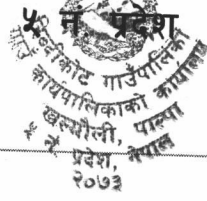 ५ नं प्रदेश
रिब्दीकोट गाउँपालिका
गाउँ कार्यपालिकाको कार्यालय
खस्यौली, पाल्पा
५ नं प्रदेश, नेपाल
२०७३